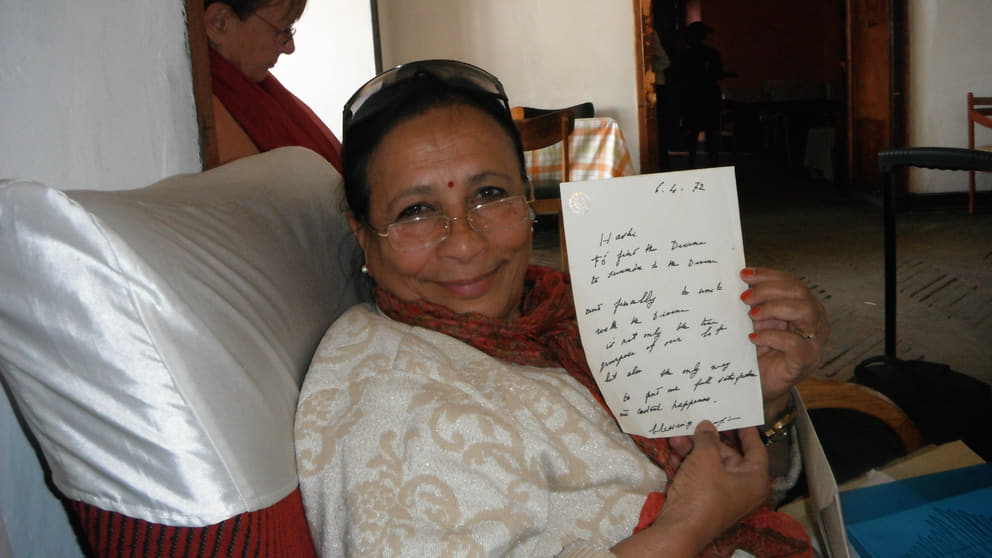 6.4.72
Hashi
To find the Divine
to surrender to the Divine
and finally to unite
with the Divine
is not only the true
purpose of one life
but also the only way
to get one full satisfaction
and happiness.
blessings